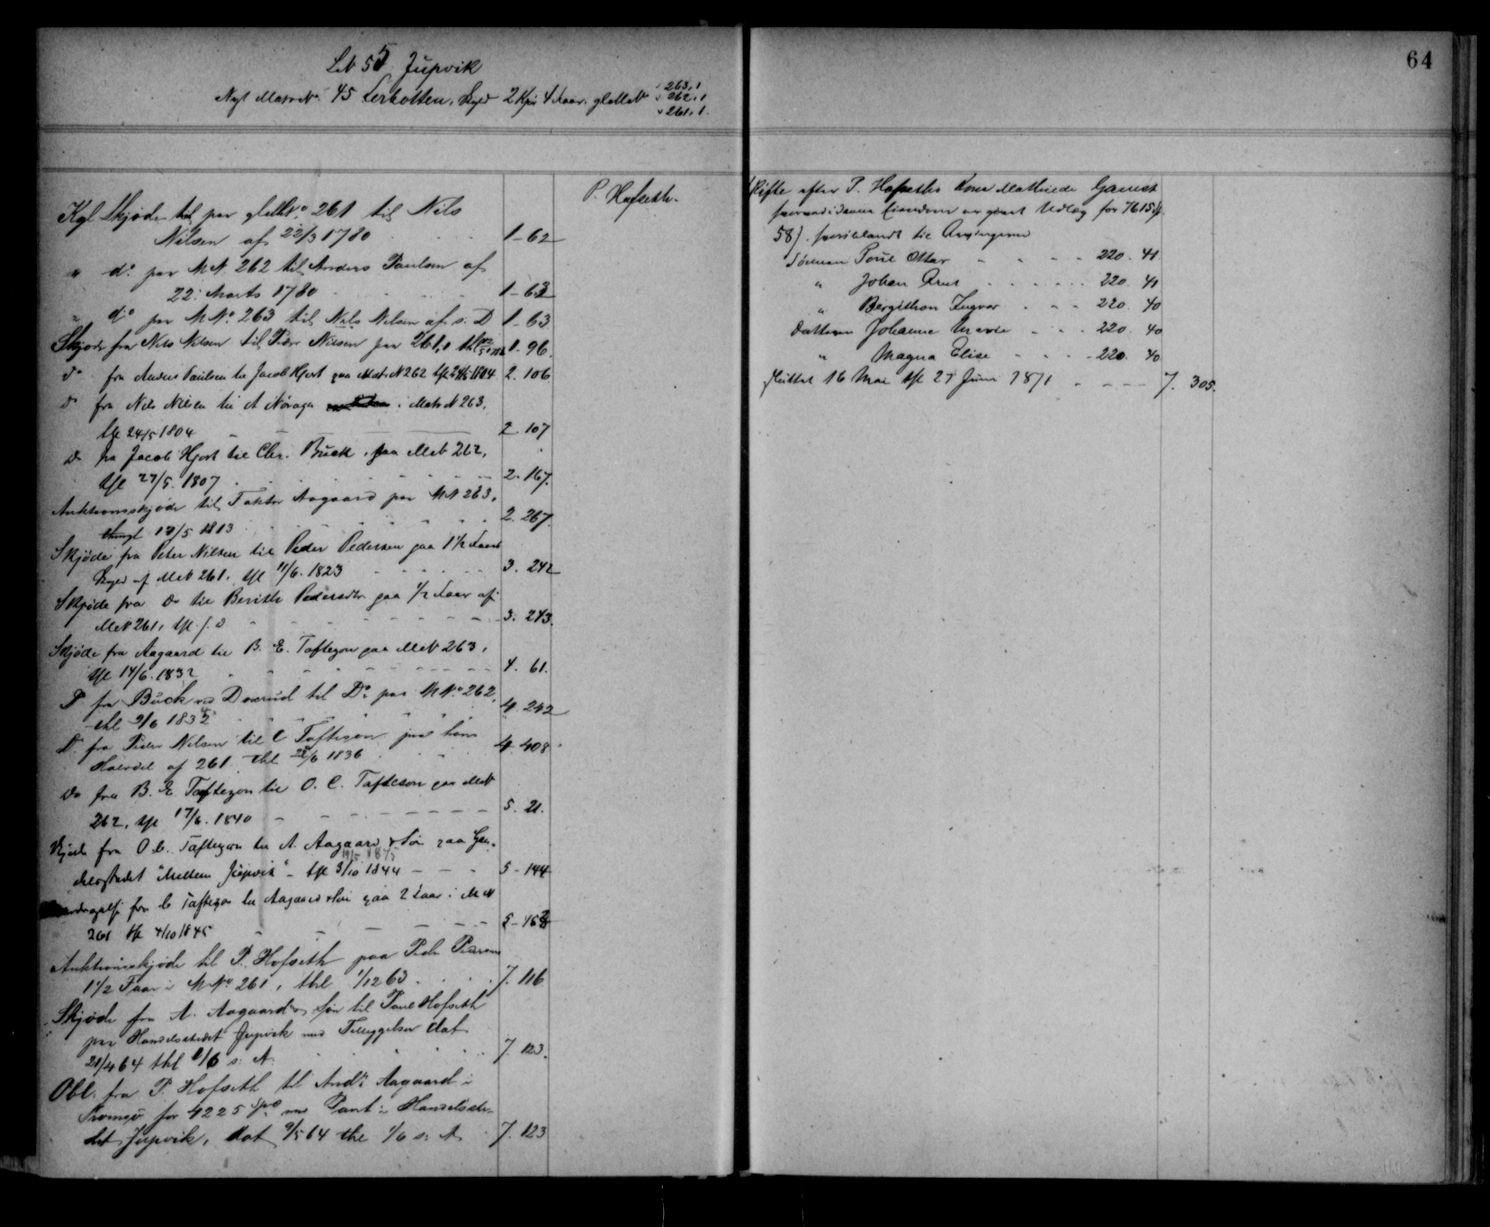 64
LN 55 Jupvik
Nyt Matr No. 45 Lerbotten, Skyld 2 Kpd 4 Faar. gl MN 263,1
" 262,1
" 261,1.
Kgl Skjøde til paa gl MN.o 261 til Nils
Nilsen af 22/3 1780 1-62
" do paa M N 262 til Anders Paulsen af
22 Marts 1780 1-63
" do paa MNo 263 til Nils Nilsen af s. D 1-63
Skjøde fra Nils Nilsen til Peder Nilsen paa 261,1 1. 96.
do fra Anders Paulsen til Jacob Hjort paa Matr N 262 2. 106
do fra Nils Nilsen til A Norager i Matr N 263,
tgl 24/5 1804 2. 107
do fra Jacob Hjort til Chr. Buck paa MN 262,
tgl 27/5. 1807 2. 167.
Auktionsskjøde til Faktor Aagaard paa MN 263,
thingl 17/5 1813 2. 267.
Skjøde fra Peter Nilsen til Peder Pedersen paa 1 1/2 Faars
Skyld af MN 261, tgl 11/6. 1823 3. 242
Skjøde fra do til Berith Pedersdtr paa 1/2 Faar af
MN 261, tgl s. D 3. 243.
Skjøde fra Aagaard til B. E. Taftezon paa MN 263,
tgl 14/6. 1832 4. 61.
Do fra Buck til Do paa MNo 262,
thl 9/6 1834 4. 242
Do fra Peder Nilsen til C Taftezon paa hans
Halvdel af 261 thl 22/6 1836 4. 408
do fra B. E Taftezon til O. C. Taftezon paa MN
262, tgl 17/6. 1840 5. 21.
Skjøde fra O. C. Taftezon til A. Aagaard & Søn paa Han-
delsstedet "Mellem Jupvik" tgl 3/10 1844 5-144
fra C Taftezon til Aagaard & Søn paa 2 Faar i MN
261 tgl 4/10 1845
Auktionsskjøde til P. Hofseth paa Peder Pedersens
1 1/2 Faar i M No 261, thl 1/12 63 7. 116
Skjøde fra A. Aagaard & Søn til Paul Hofseth
paa Handelsstedet Jupvik med Tilliggelser dat
21/4 64 thl 1/6 s. A. 7. 123.
Obl. fra P. Hofseth til Andr Aagaard i
Tromsø for 4225 Spd med Pant i Handelsste-
det Jupvik, dat 9/5 64 thl 1/6 s. A 7. 123
P. Hofseth.
Skifte efter P. Hofseths Kone Mathilde Gamst
hvorved i denne Eiendom er gjort Udlæg for 7615
58 ß. hvoriblandt til Arvingerne
Sønnen Povel Ottar - - - - 220. 41
" Johan Arnt - - - - 220. 40
" Bergithon Ingvar - - - 220. 40
Datteren Johanne Marie - - - 220. 40
" Magna Elise - - - - 220. 40
sluttet 16 Mai tgl 27 Juni 1871 - - - - 7. 305.